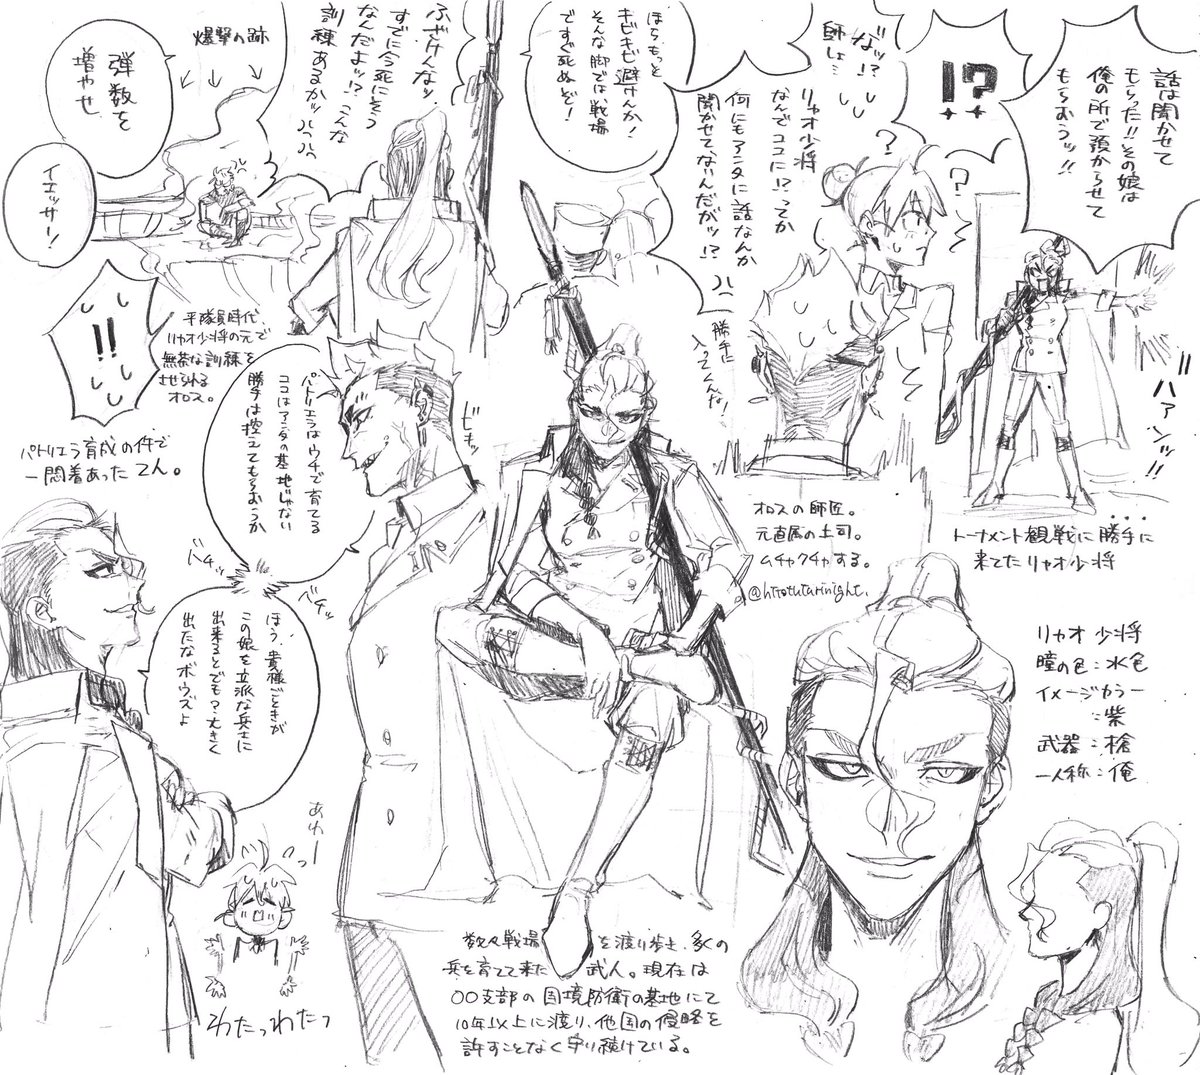 話は聞かせて
もらった!!その娘は
俺の所で預からせて
もらおうッ!!
!?
バァンッ!!
なッ!?
師しょ…
?
?
リャオ少将
なんでココに!?ってか
何にもアンタに話なんか
聞かせてないんだがッ!?
勝手に
入ってくんな!
トーナメント観戦に勝手に
来てたリャオ少将
オロスの師匠。
元直属の上司。
ムチャクチャする。
@hitotuturinight.
ほらもっと
キビキビ避けんか!
そんな脚では戦場
ですぐ死ぬぞ!
ふざけんなッ
すでに今死にそう
なんだよッ!?こんな
訓練あるかッ
爆撃の跡
弾数を
増やせ
イエッサー!
!!
平隊員時代
リャオ少将の元で
無茶な訓練を
させられる
オロス。
パトリエラ育成の件で
一悶着あったてん。
パトリエラはウチで育てる
ココはアンタの基地じゃない
勝手は控えてもらおうか
ビキッ
バチッ
バチッ
ほう、貴様ごときが
この娘を立派な兵士に
出来るとでも?大きく
出たなボウズよ
あわー
わたっわたっ
数々戦場を渡り歩き、多くの
兵を育てて来た武人。現在は
〇〇支部の国境防衛の基地にて
10年以上に渡り、他国の侵略を
許すことなく守り続けている。
リャオ少将
瞳の色:水色
イメージカラー
:紫
武器:槍
一人称:俺